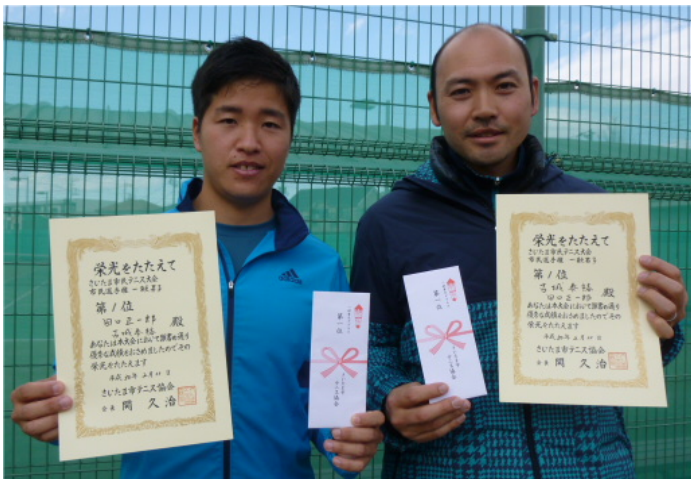 栄光をたたえて
さいたま市民テニス大会
市民選手権 一般男子
第1位
田口正一郎
殿
あなたは本大会において頭書の通り
優秀な成績をおさめましたのでその
栄光をたたえます
さいたま市テニス協会
会長 関久治
adidas
第一位
さいたま市
テニス協会
第一位
さいたま市
テニス協会
栄光をたたえて
さいたま市民テニス大会
市民選手権 一般男子
第1位
田口正一郎
殿
あなたは本大会において頭書の通り
優秀な成績をおさめましたのでその
栄光をたたえます
さいたま市テニス協会
会長 関久治